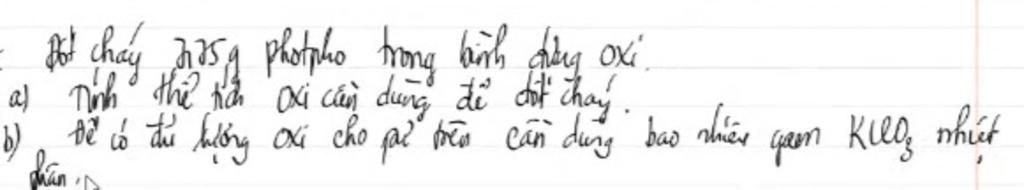 Đốt cháy 7,75g photpho trong bình đựng oxi.
a) Tính thể tích oxi cần dùng để đốt cháy.
b) Để có đủ lượng oxi cho pư trên cần dùng bao nhiêu gam KClO3 nhiệt
phân.